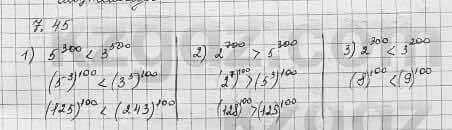 7.45
1) 5^300 < 3^500 2) 2^700 > 5^300 3) 2^300 < 3^200
(5^3)^100 < (3^5)^100 (2^7)^100 > (5^3)^100 (8)^100 < (9)^100
(125)^100 < (243)^100 (128)^100 > 125^100